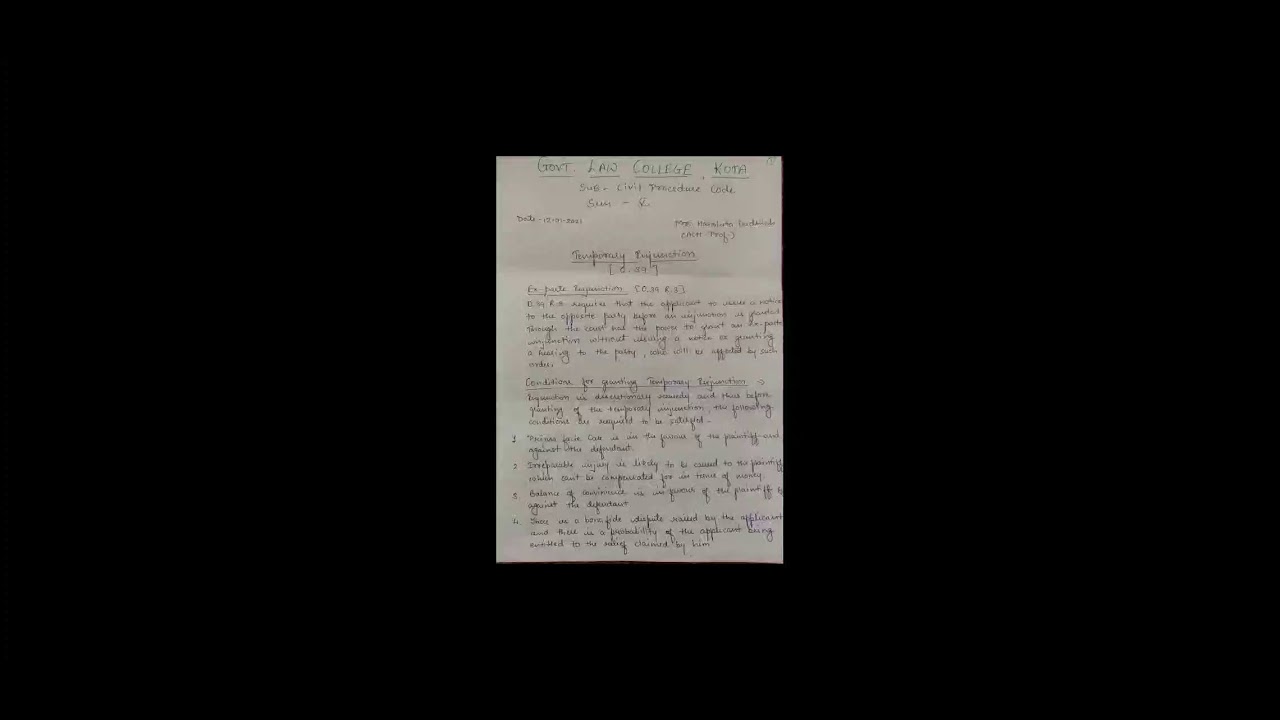 GOVT. LAW COLLEGE, KOTA
Sub- Civil Procedure Code
Sem -
Date-12-01-2021
Temporary Injunction
[O. 39]
Ex-parte Injunction [O.39 R.3]
O.39 R.3 requires that the applicant to issue a notice
to the opposite party before an injunction is granted
through the court has the power to grant an ex-parte
injunction without issuing a notice or granting
a hearing to the party, who will be affected by such
order.
Conditions for granting Temporary Injunction →
Injunction is discretionary remedy and thus before
granting of the temporary injunction, the following
conditions are required to be satisfied-
1. Prima facie Case is in the favour of the plaintiff and
against the defendant.
2. Irreparable injury is likely to be caused to the plaintiff
which can't be compensated for in terms of money
3. Balance of convinience is in favour of the plaintiff &
against the defendant
4. There is a bonafide dispute raised by the applicant
and there is a probability of the applicant being
entitled to the relief claimed by him